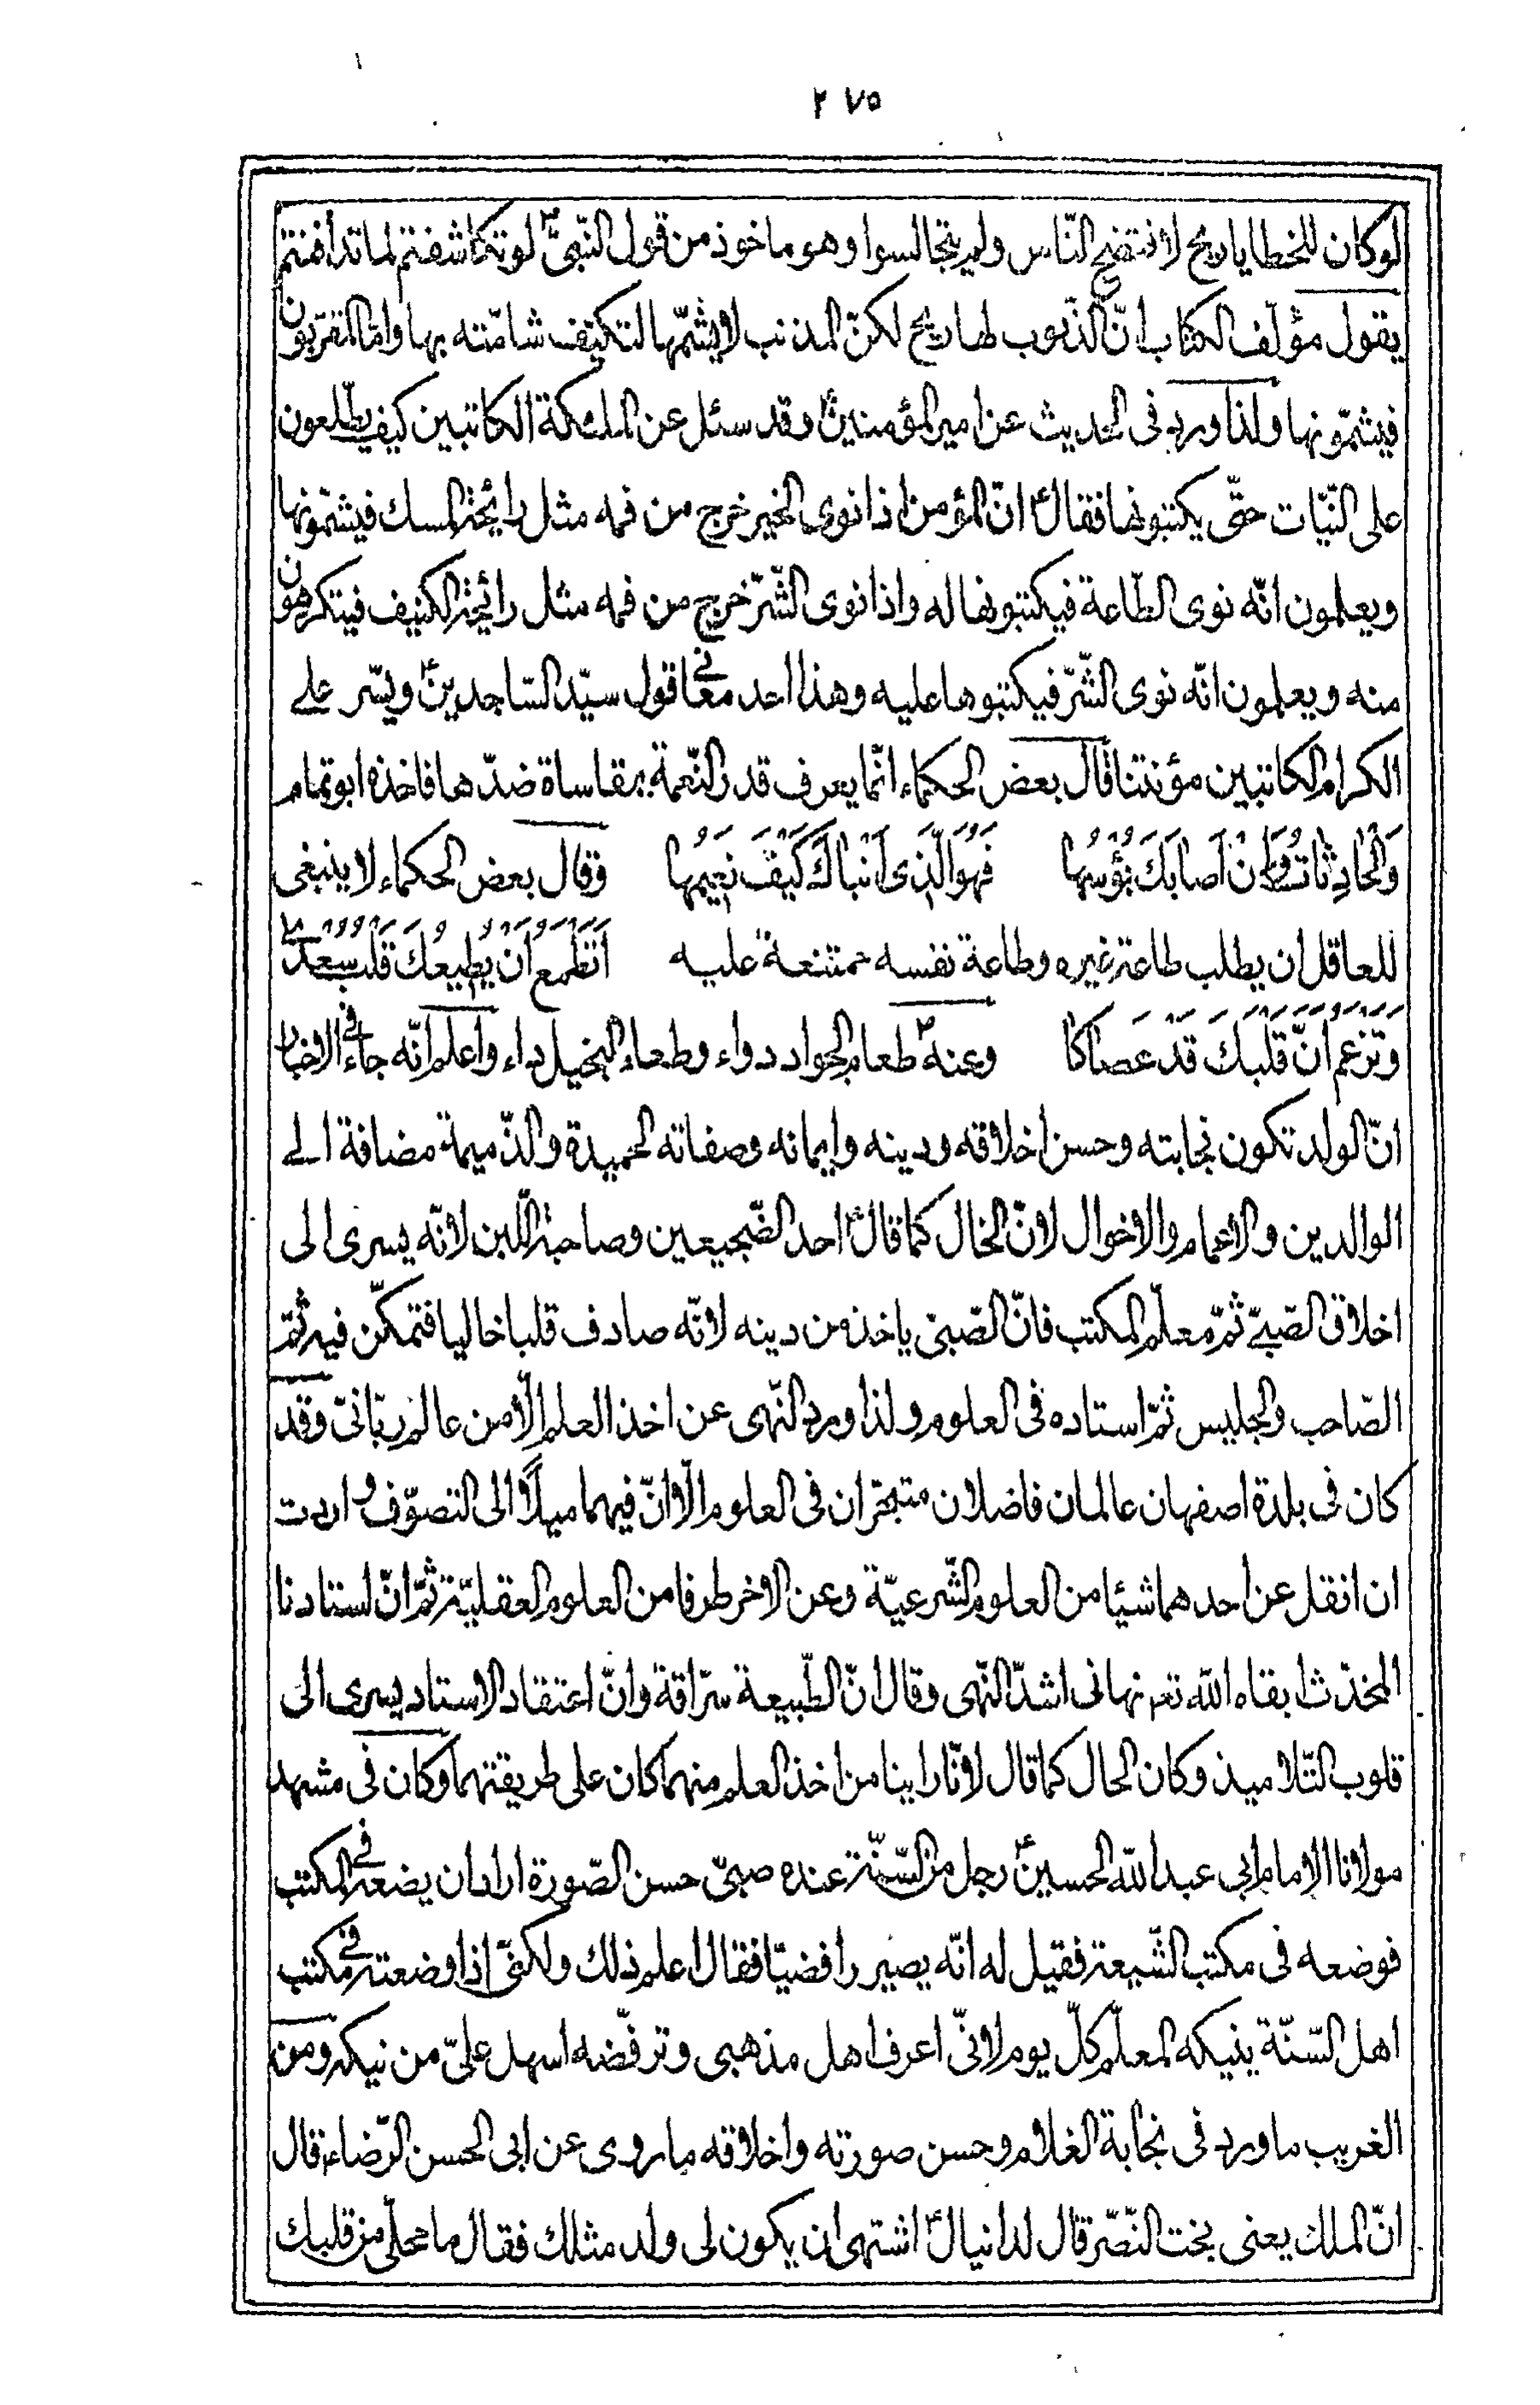 ٢٧٥
لو كان للخطايا ريح لافتضح الناس ولم يتجالسوا وهو ماخوذ من قول النبىّ ص لو تكاشفتم لما تدافنتم
يقول مؤلّف الكتاب انّ الذّنوب لها ريح لكنّ المذنب لا يشمّها لتكيّف شامّته بها وامّا المقرّبون
فيشمّونها ولذا ورد فى الحديث عن امير المؤمنين ع وقد سئل عن الملئكة الكاتبين كيف يطّلعون
على النّيّات حتّى يكتبونها فقال ع انّ المؤمن اذا نوى الخير خرج من فمه مثل رائحة المسك فيشمّونها
ويعلمون انّه نوى الطّاعة فيكتبونها له واذا نوى الشّرّ خرج من فمه مثل رائحة الكنيف فيتكرهون
منه ويعلمون انّه نوى الشّرّ فيكتبوها عليه وهذا احد معانى قول سيّد السّاجدين ع ويسّر على
الكرام الكاتبين مؤنتنا قال بعض الحكماء انّما يعرف قدر النّعمة بمقاساة ضدّها فاخذه ابو تمام
وَالحَادِثَاتُ وَاِنْ اَصَابَكَ بُؤْسُهَا فَهُوَ الَّذِى اَنْبَاكَ كَيْفَ نَعِيمُهَا وقال بعض الحكماء لا ينبغى
للعاقل ان يطلب طاعة غيره وطاعة نفسه ممتنعة عليه اَتَطْمَعُ اَنْ يُطِيعَكَ قَلْبُ سُعْدَى
وَتَزْعَمُ اَنَّ قَلْبَكَ قَدْ عَصَاكَا وعنه ص طعام الجواد دواء وطعام البخيل داء واعلم انّه جاء فى الاخبار
انّ الولد تكون نجابته وحسن اخلاقه ودينه وايمانه وصفاته الحميدة والذّميمة مضافة الى
الوالدين والاعمام والاخوال لانّ الخال كما قال ع احد الضّجيعين وصاحبة اللّبن لانّه يسرى الى
اخلاق الصّبىّ ثمّ معلّم المكتب فانّ الصّبىّ ياخذ من دينه لانّه صادف قلبا خاليا فتمكّن فيه ثمّ
الصّاحب والجليس ثمّ استاده فى العلوم ولذا ورد النّهى عن اخذ العلم الّا من عالم ربّانىّ وقد
كان فى بلدة اصفهان عالمان فاضلان متبحّران فى العلوم الّا انّ فيهما ميلًا الى التصوّف واردت
ان انقل عن احدهما شيئا من العلوم الشّرعيّة وعن الاخر طرفا من العلوم العقليّة ثمّ انّ استادنا
المحدّث ابقاه اللّه تعم نهانى اشدّ النّهى وقال انّ الطّبيعة سرّاقة وانّ اعتقاد الاستاد يسرى الى
قلوب التّلاميذ وكان الحال كما قال لانّا راينا من اخذ العلم منهما كان على طريقتهما وكان فى مشهد
مولانا الامام ابى عبد اللّه الحسين ع رجل من السّنّة عنده صبىّ حسن الصّورة اراد ان يضعه فى المكتب
فوضعه فى مكتب الشّيعة فقيل له انّه يصير رافضيّا فقال اعلم ذلك ولكنّى اذا وضعته فى مكتب
اهل السّنّة ينيكه المعلّم كلّ يوم لانّى اعرف اهل مذهبى وترفّضه اسهل علىّ من نيكه ومن
الغريب ما ورد فى نجابة الغلام وحسن صورته واخلاقه ما روى عن ابى الحسن الرّضاء ع قال
انّ الملك يعنى بخت النّصّر قال لدانيال ع اشتهى ان يكون لى ولد مثلك فقال ما محلّى من قلبك